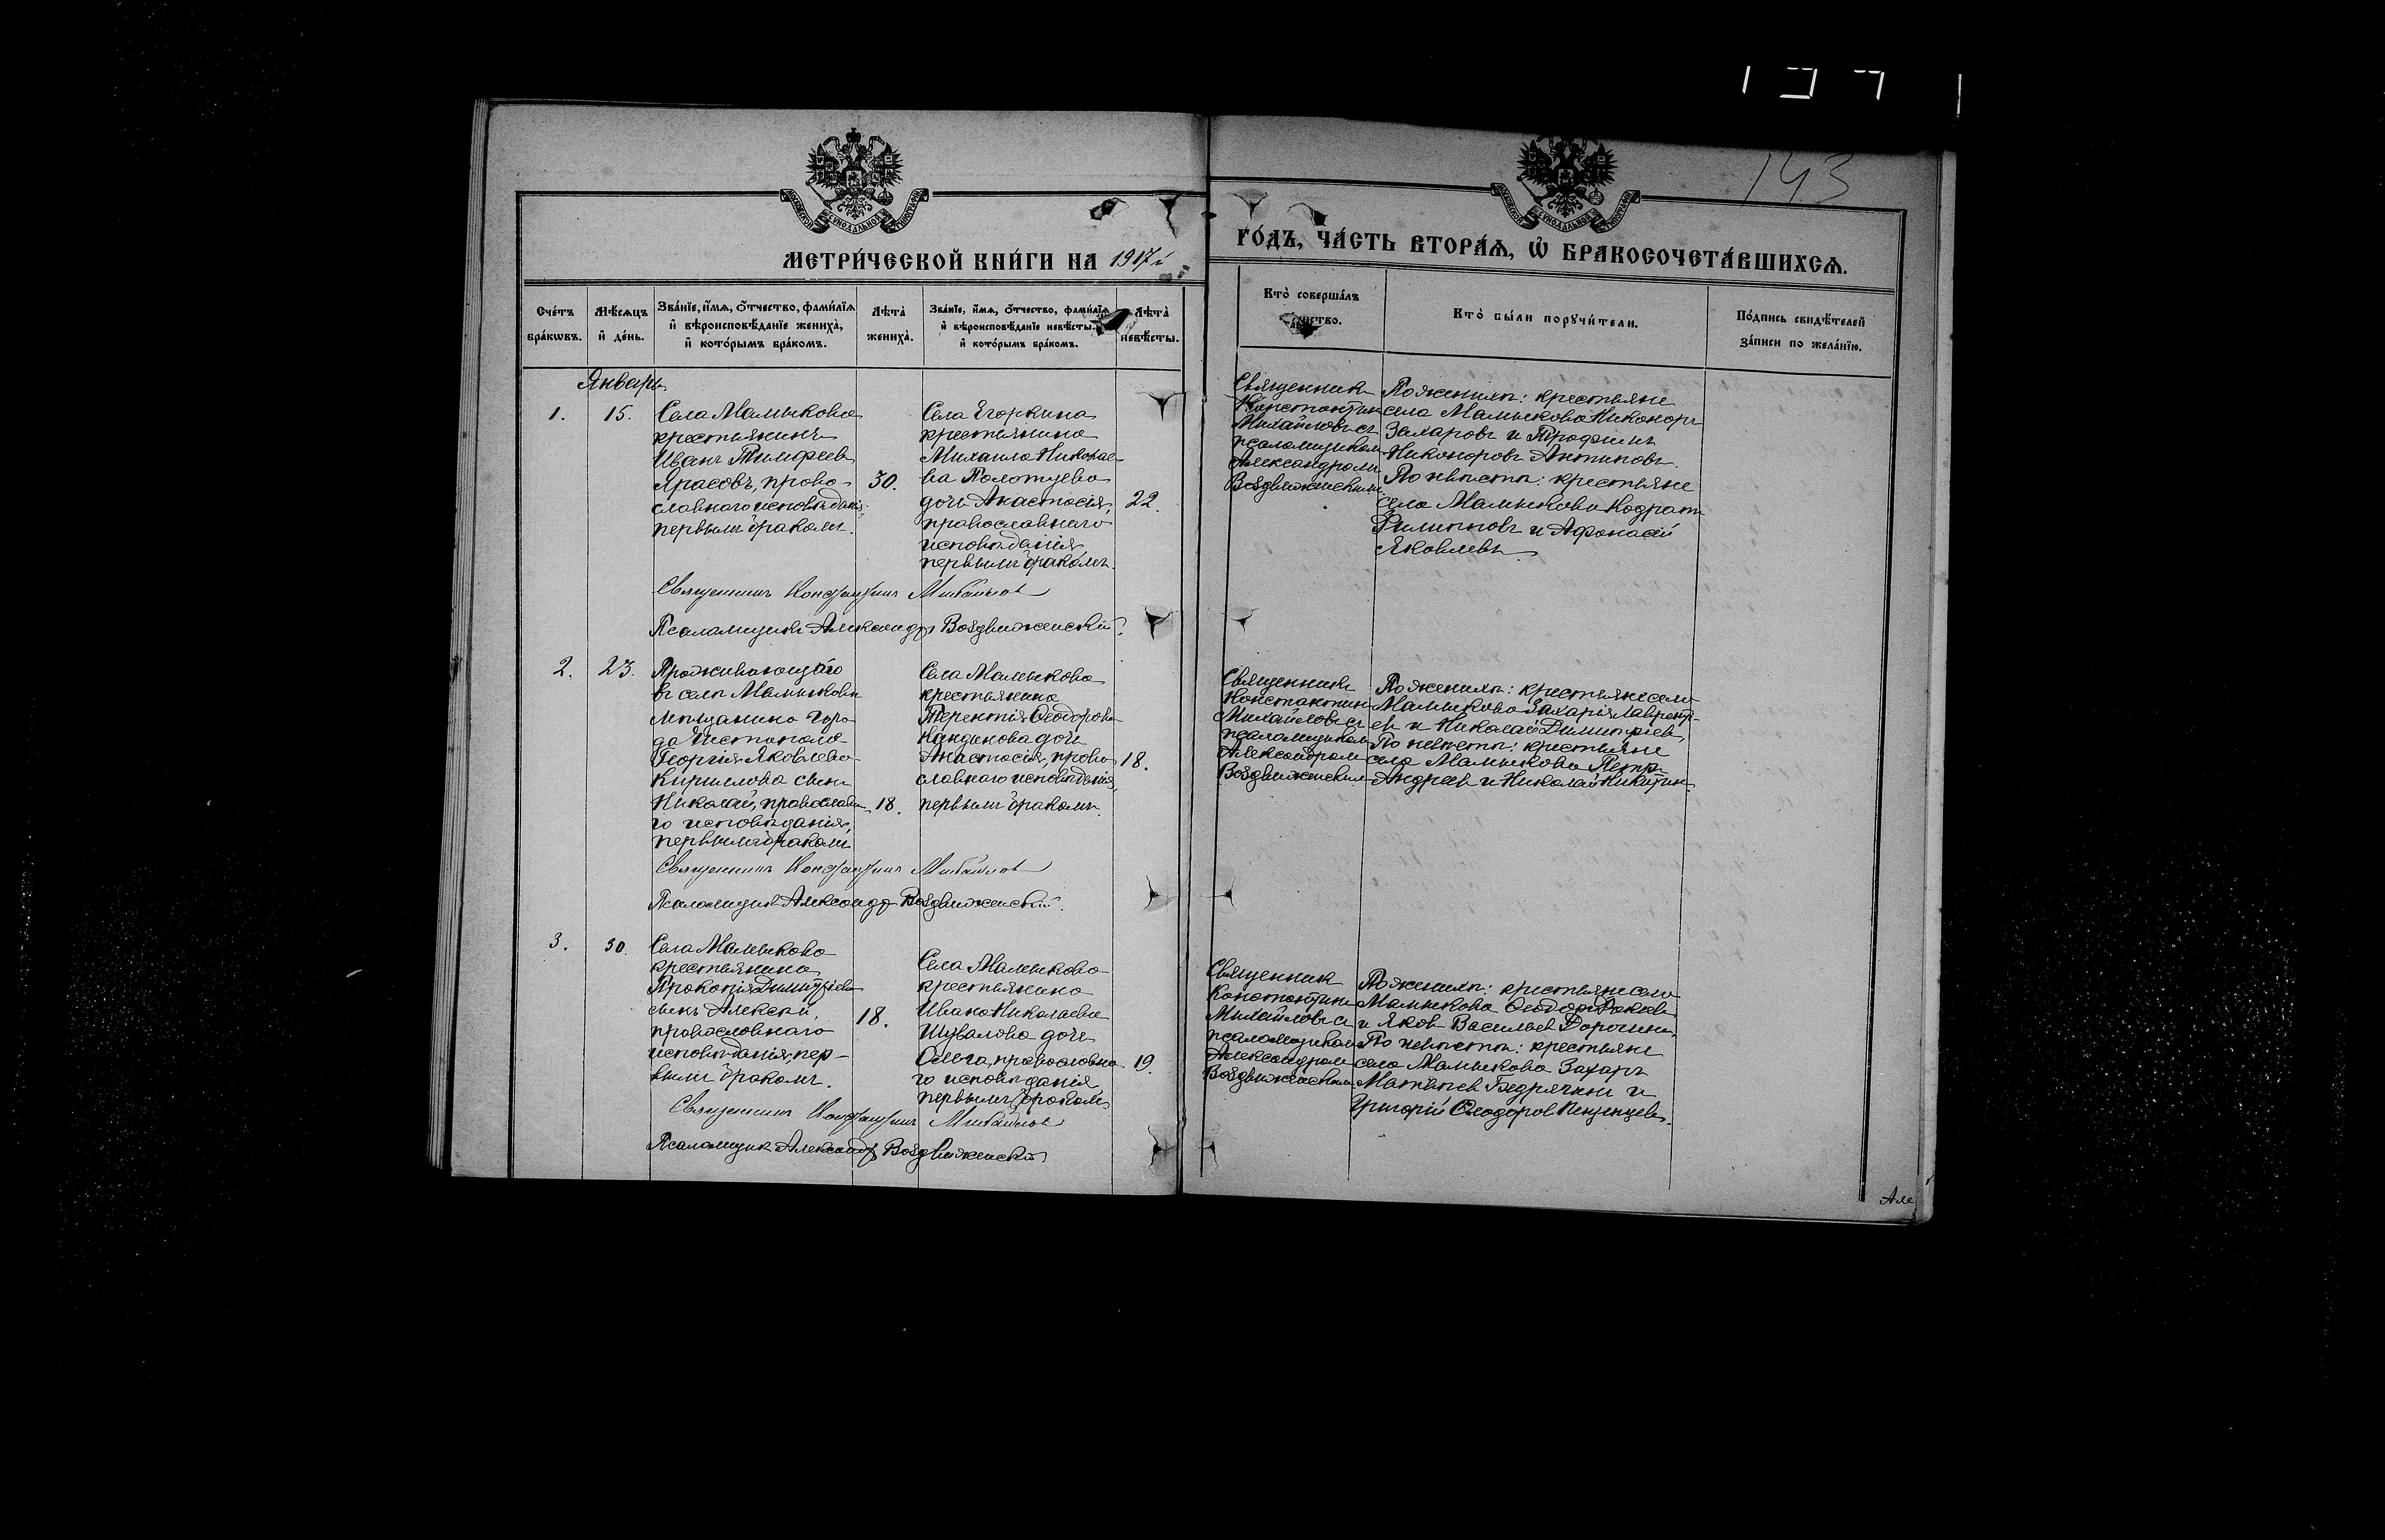 143
МЕТРИ́ЧЕСКОЙ КНИ́ГИ НА 1917 й
ГО́ДЪ, ЧА́СТЬ ВТОРА́Ѧ, Ѿ БРАКОСОЧЕТА́ВШИХСѦ.
Сче́тъ бра́кѡвъ.
Мѣ́сѧцъ и҆ де́нь.
Зва́нїе, и҆́мѧ, ѻ҆́тчество, фами́лїѧ
и҆ вѣроисповѣ́данїе жениха̀,
и҆ кото́рымъ бра́комъ.
Лѣта̀ жениха̀.
Зва́нїе, и҆́мѧ, ѻ҆́тчество, фами́лїѧ
и҆ вѣроисповѣ́данїе невѣ́сты,
и҆ кото́рымъ бра́комъ.
Лѣта̀ невѣ́сты.
Кто̀ соверша́лъ
Кто̀ бы́ли порꙋчи́тели.
По́дпись свидѣ́телей
за́писи по жела́нїю.
Январь
1.
15.
Села Малыкова
крестьянинъ
Иванъ Тимофеев
Ярасовъ, право-
славнаго исповѣданія,
первымъ бракомъ.
30.
Села Егоркина
крестьянина
Михаила Николае-
ва Полотцева
дочь Анастасія,
православнаго
исповѣданія
первымъ бракомъ.
22.
Священник
Константин
Михайловъ съ
псаломщиком
Александромъ
Воздвиженскимъ.
По женихѣ: крестьяне
села Малыкова Никаноръ
Захаровъ и Трофимъ
Никаноровъ Антиповъ.
По невѣстѣ: крестьяне
села Малыкова Кодрат
Филипповъ и Афанасій
Яковлевъ
Священникъ Константинъ Михайлов
Псаломщикъ Александръ Воздвиженскій.
2.
23.
Проживающаго
въ селѣ Малыковѣ
мѣщанина горо-
да Чистополя
Георгія Яковлева
Кириллова сынъ
Николай, православна-
го исповѣданія,
первымъ бракомъ
18.
Села Малыкова
крестьянина
Терентія Ѳеодорова
дочь
Анастасія, право-
славнаго исповѣданія,
первымъ бракомъ.
18.
Священникъ
Константинъ
Михайловъ съ
псаломщиком
Александром
Воздвиженским
По женихѣ: крестьяне села
Малыкова Захарія Лаврентi-
ев и Николай Димитріев,
По невѣстѣ: крестьяне
села Малыкова Петръ
Андреев и Николай Никитин.
Священникъ Константинъ Михайлов
Псаломщик Александр Воздвиженскій.
3.
30.
Села Малыкова
крестьянина
Прокопія Димитріева
сынъ Алексѣй,
православнаго
исповѣданія, пер-
вымъ бракомъ.
18.
Села Малыкова
крестьянина
Ивана Николаева
Шувалова дочь
Ольга, православна-
го исповѣданія
первымъ бракомъ
19.
Священник
Константинъ
Михайловъ с
псаломщиком
Александром
Воздвиженским
По женихѣ: крестьяне села
Малыкова Ѳеодоръ
и Яков Васильев
По невѣстѣ: крестьяне
села Малыкова Захаръ
Матвѣев и
Григорій Ѳеодоров
Священникъ Константинъ Михайлов
Псаломщик Александр Воздвиженскій
Але